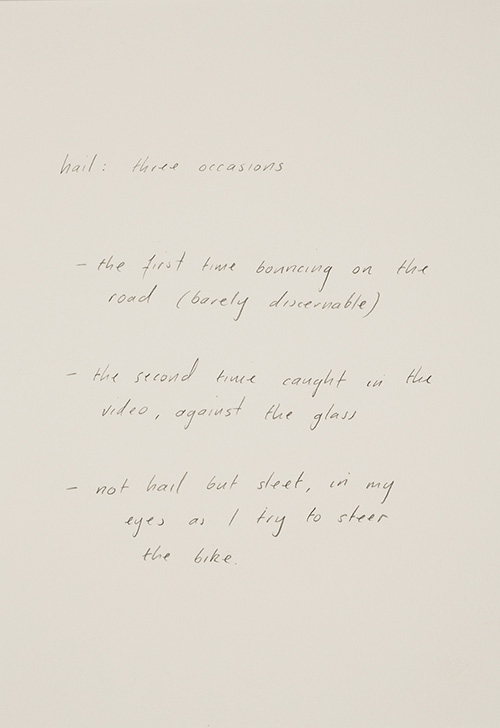 hail: three occasions
- the first time bouncing on the
road (barely discernable)
- the second time caught in the
video, against the glass
- not hail but sleet, in my
eyes as I try to steer
the bike.